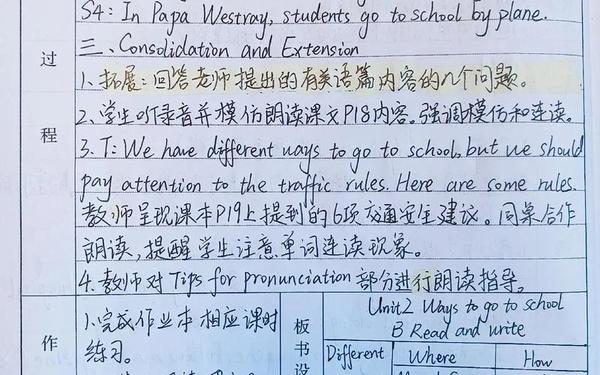 S4: In Papa Westray, students go to school by plane.
三、Consolidation and Extension
过
1、拓展:回答老师提出的有关语篇内容的几个问题。
2、学生听录音并模仿朗读课文P18内容。强调模仿和连读。
程
3. T: We have different ways to go to school, but we should
pay attention to the traffic rules. Here are some rules.
教师呈现课本P19上提到的6项交通安全建议。同桌合作
朗读,提醒学生注意单词连读现象。
4.教师对Tips for pronunciation部分进行朗读指导。
作
1.完成作业本相应课时
练习。
板
书
设
Unit2 Ways to go to school
B Read and write
Different
Where
How